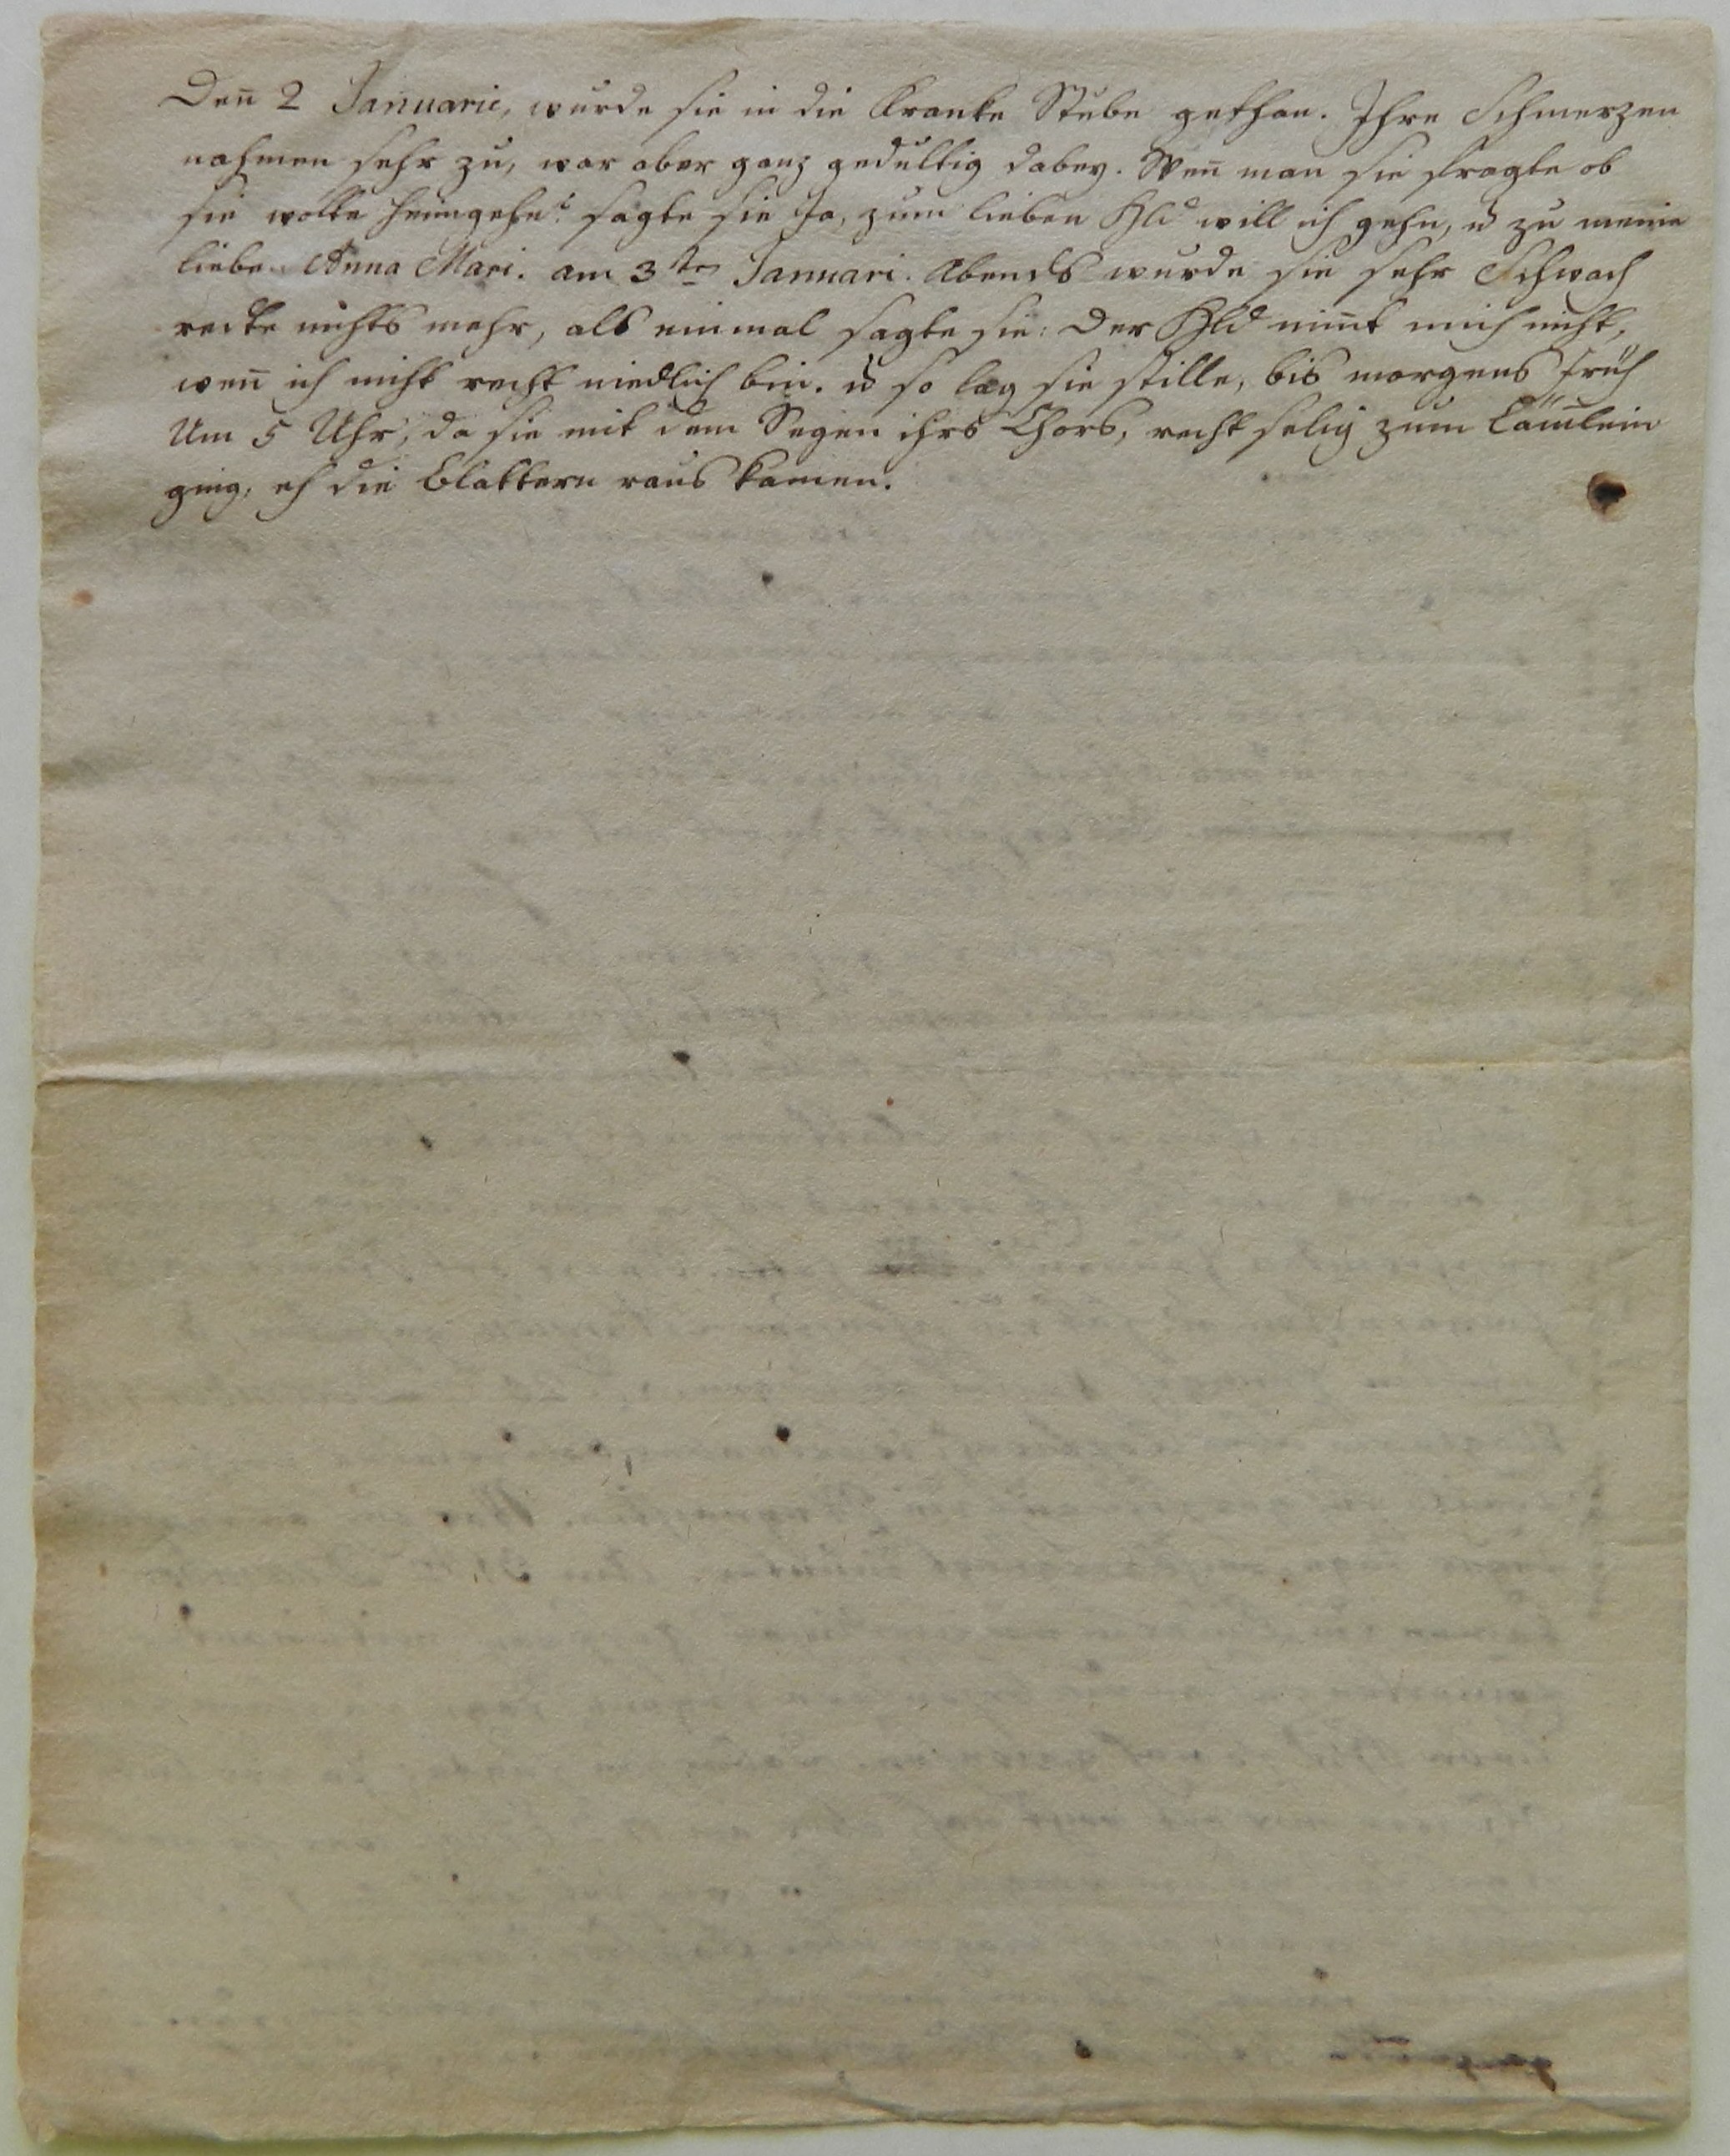 Den̄ 2 Januarie, wurde sie in die Kranke Stube gethan. Ihre Schmerzen
nahmen sehr zu, war aber ganz gedultig dabey. Wen̄ man sie fragte ob
sie wolte heimgehn? sagte sie Ja, zum lieben Hld will ich gehn, u zu meine
liebe Anna Mari. am 3ten Januari. Abends wurde sie sehr Schwach
redte nichts mehr, als einmal sagte sie: Der Hld nim̄t mich nicht,
wen̄ ich nicht recht niedlich bin. u so lag sie stille, bis morgens früh
Um 5 Uhr, da sie mit dem Segen ihrs Chors, recht selig zum Läm̄lein
ging, eh die Blattern raus kamen.